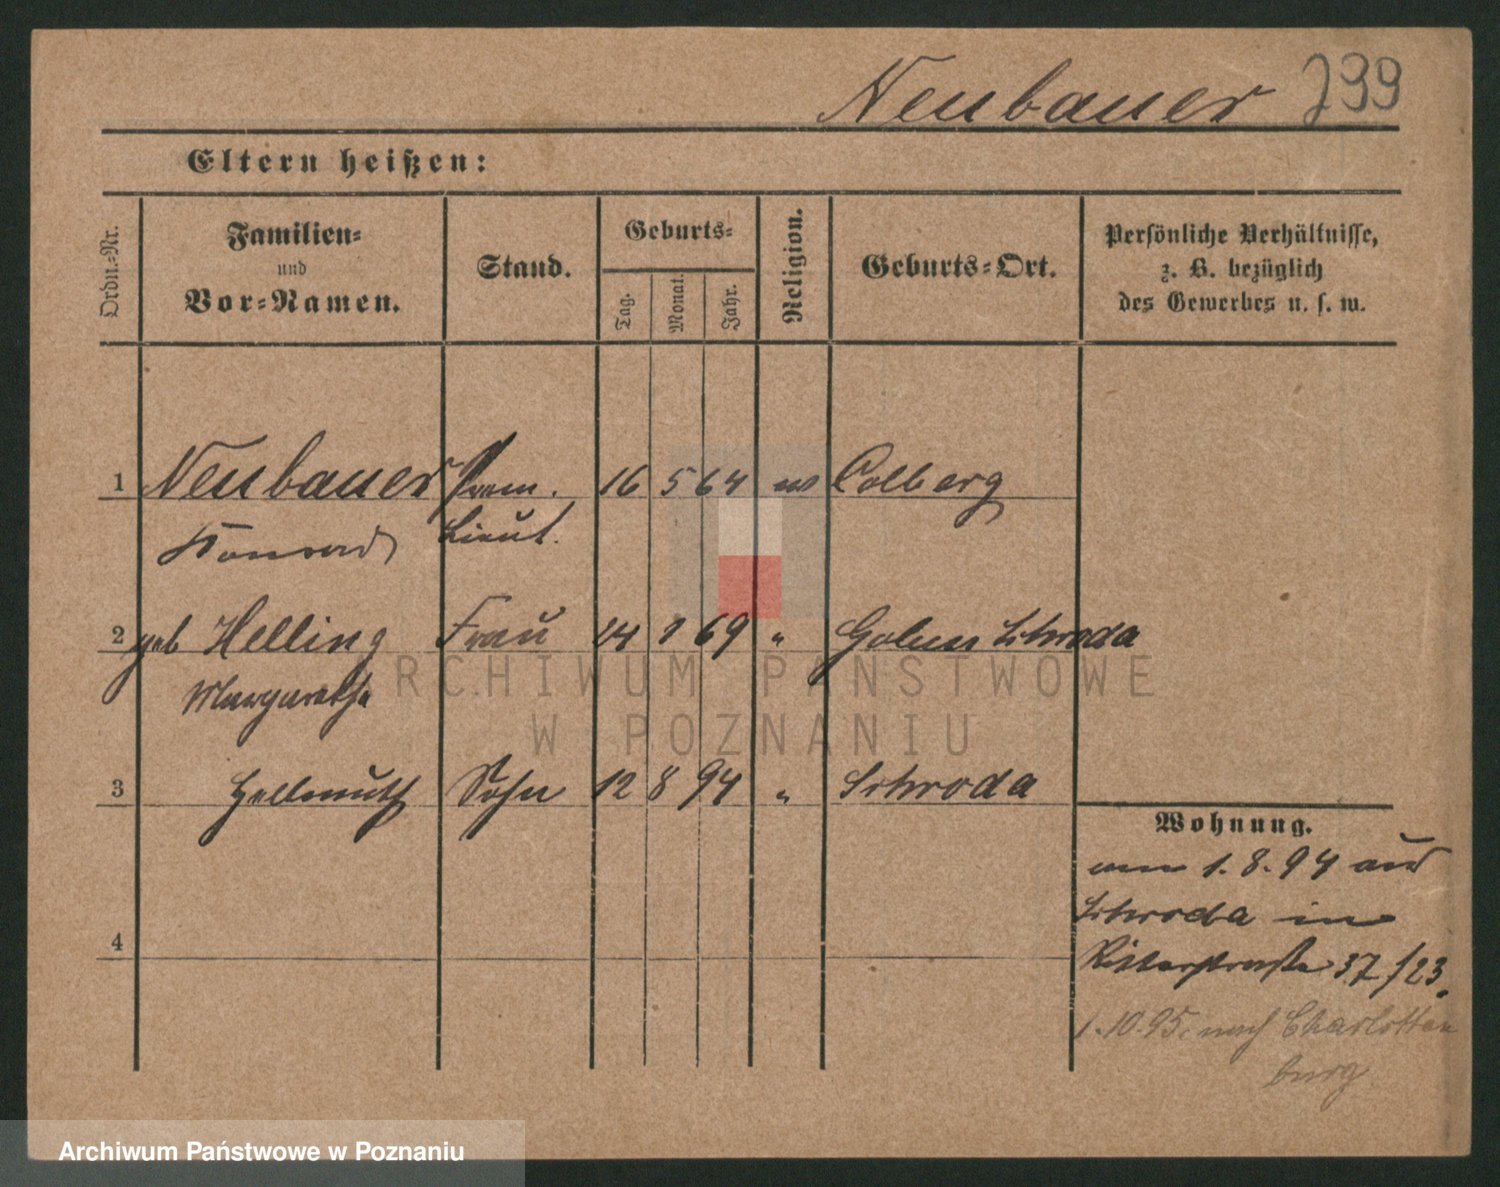 Neubauer 799
Eltern heißen:
Ordn.-Nr.
Familien-
und
Vor-Namen.
Stand.
Geburts-
Tag.
Monat.
Jahr.
Religion.
Geburts-Ort.
Persönliche Verhältnisse,
z. B. bezüglich
des Gewerbes u. s. w.
1 Neubauer Prem. 16 5 64 ev Colberg
Konrad Lieut.
2 geb Helling Frau 14 1 69 " Schroda
Margarethe
3 Hellmuth Sohn 12 8 94 " Schroda
4
Wohnung.
am 1.8.94 aus
Schroda in
Ritterstraße 37/23.
1.10.95. nach Charlotten
burg
ARCHIWUM PAŃSTWOWE
W POZNANIU
Archiwum Państwowe w Poznaniu